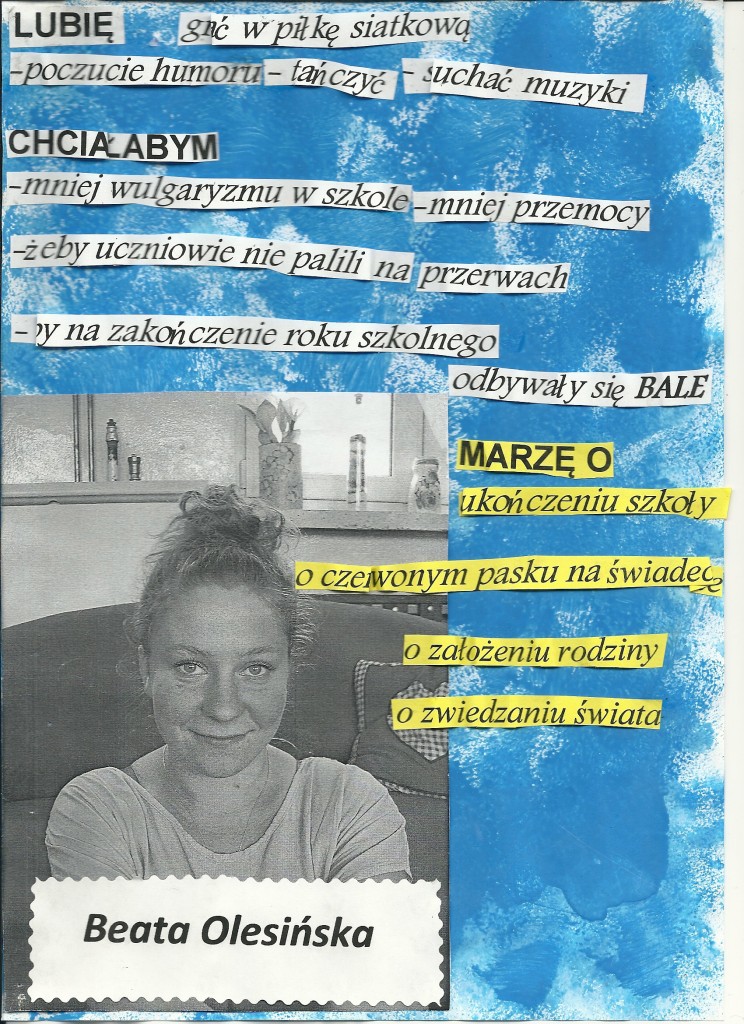 LUBIĘ grć w piłkę siatkową
-poczucie humoru - tańczyć - suchać muzyki
CHCIAŁABYM
-mniej wulgaryzmu w szkole -mniej przemocy
-żeby uczniowie nie palili na przerwach
-by na zakończenie roku szkolnego
odbywały się BALE
MARZĘ O
ukończeniu szkoły
o czerwonym pasku na świadec
o założeniu rodziny
o zwiedzaniu świata
Beata Olesińska